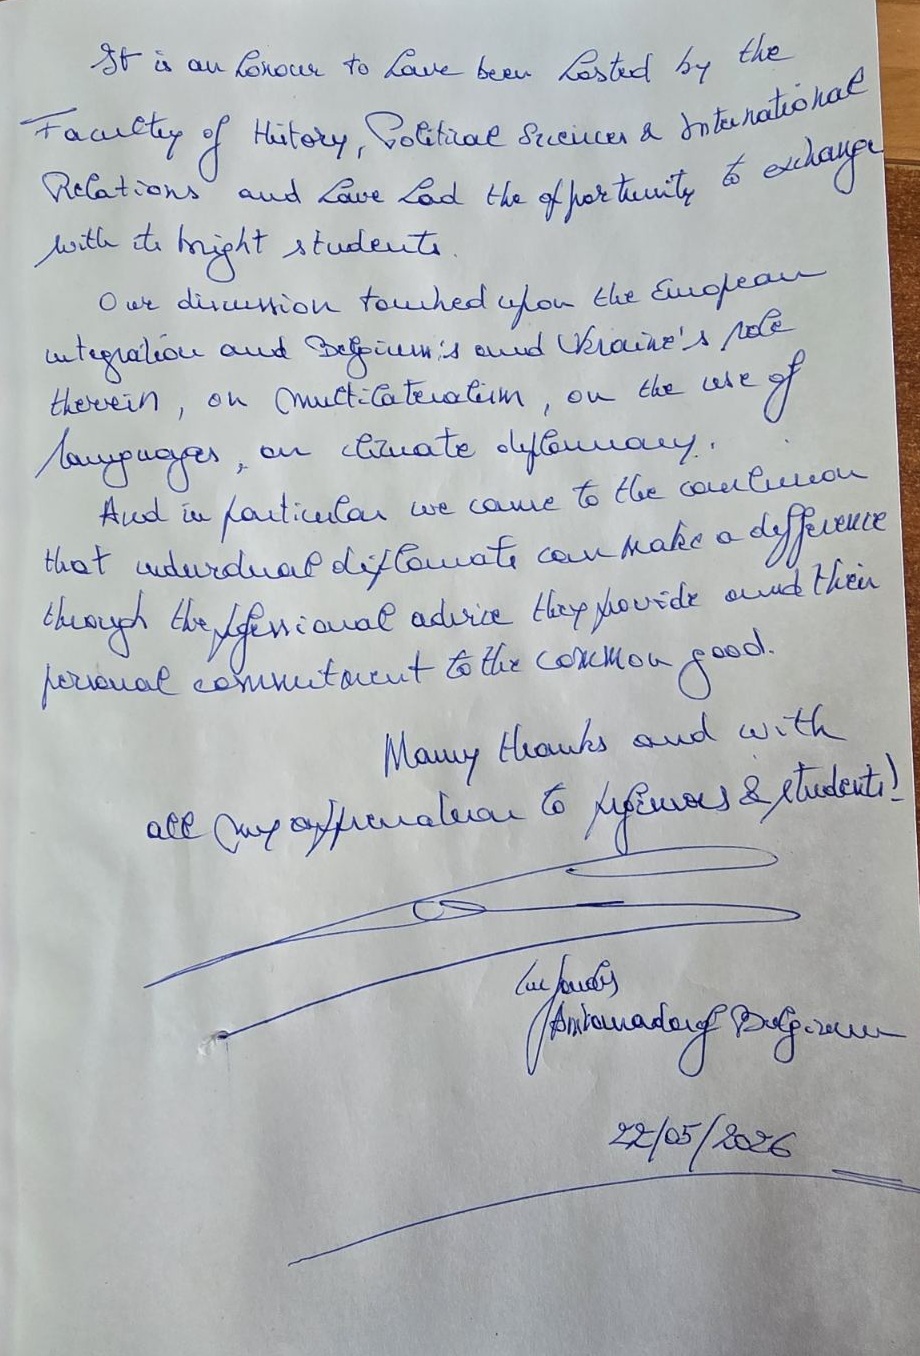 It is an honour to have been hosted by the
Faculty of History, Political Sciences & International
Relations and have had the opportunity to exchange
with its bright students.
Our discussion touched upon the European
integration and Belgium's and Ukraine's role
therein, on multilateralism, on the use of
languages, on climate diplomacy.
And in particular we came to the conclusion
that individual diplomats can make a difference
through the professional advice they provide and their
personal commitment to the common good.
Many thanks and with
all my appreciation to professors & students!
Luc
Ambassador of Belgium
22/05/2026